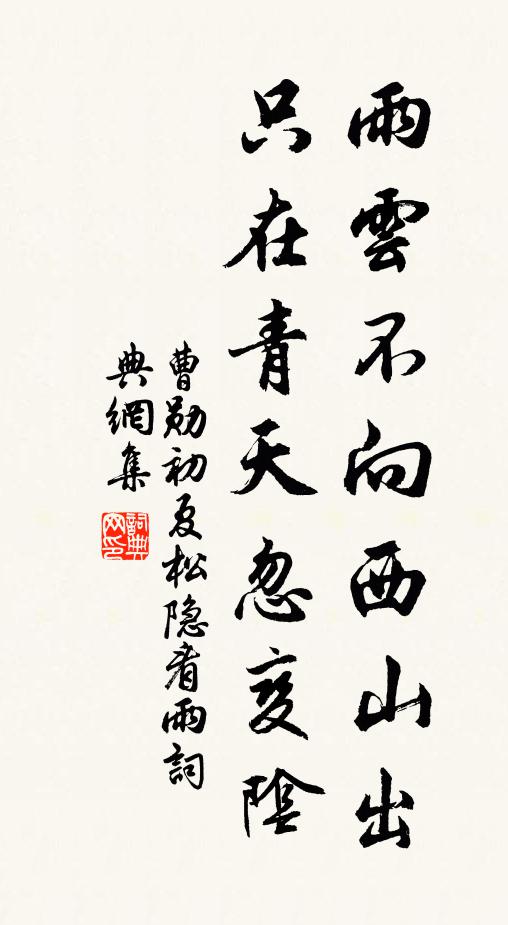 雨雲不向西山出
只在青天忽变陰
曹勋初夏松隐看雨詞
典網集
詞典
网印